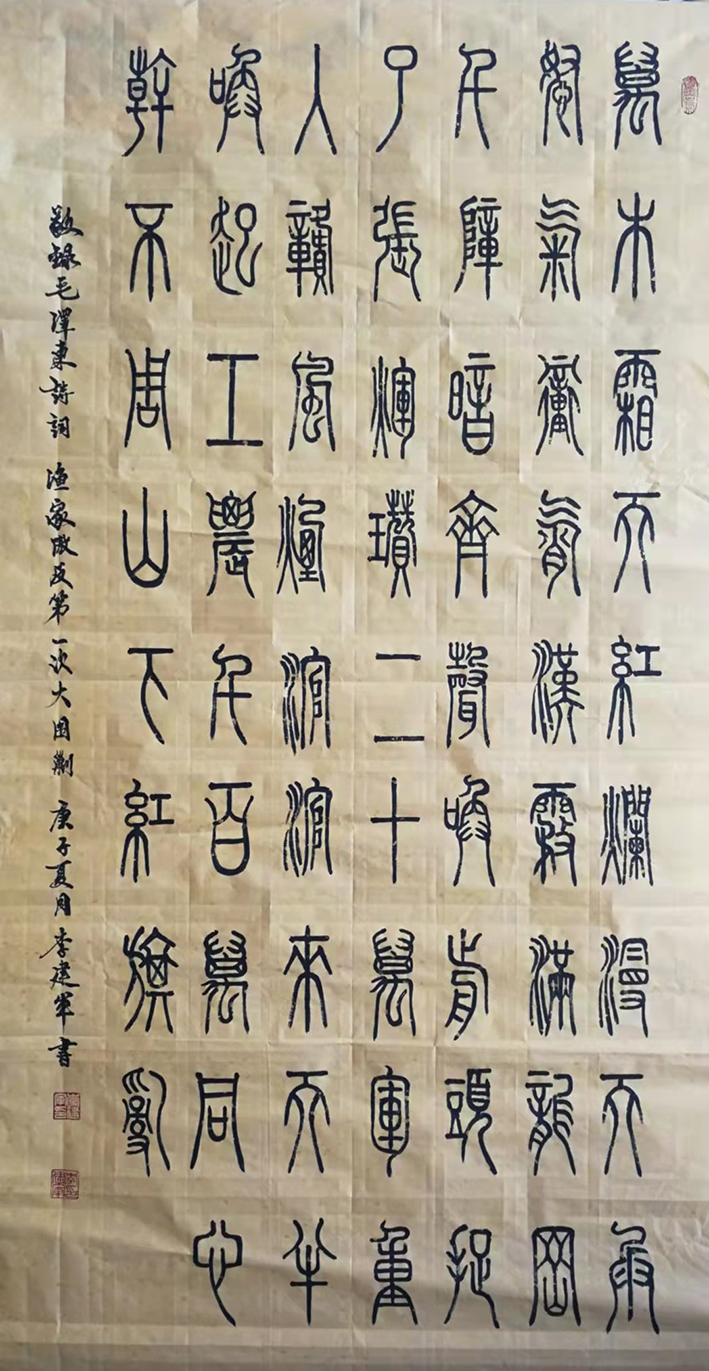 萬木霜天紅爛漫天兵
怒氣衝霄漢霧滿龍岡
千嶂暗齊聲喚前頭捉
了張輝瓚二十萬軍重
入贛風煙滾滾來天半
喚起工農千百萬同心
幹不周山下紅旗亂
敬録毛澤東詩詞 渔家傲反第一次大围剿 庚子夏月李建軍書